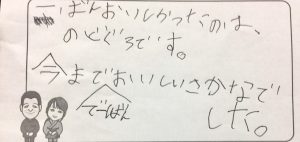 一ばんおいしかったのは、
のどぐろです。
今までおいしいさかなで
でいちばん
した。